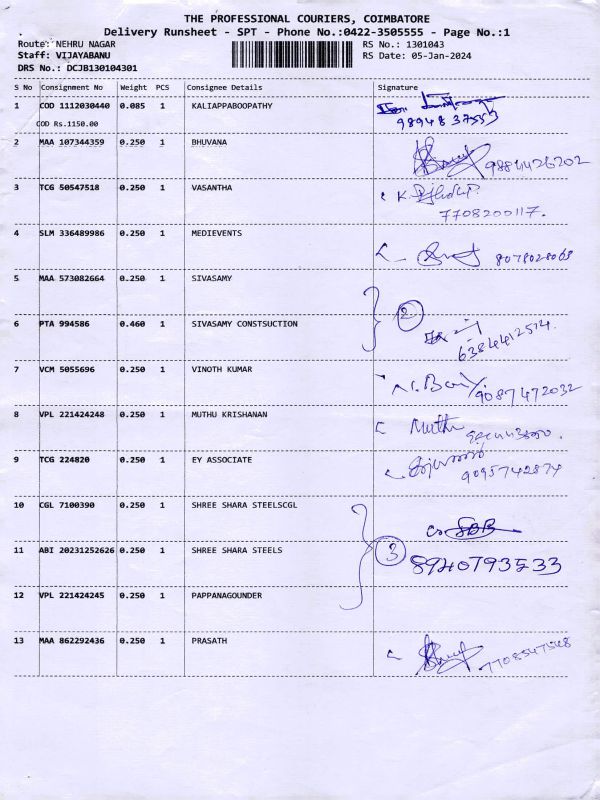 THE PROFESSIONAL COURIERS, COIMBATORE
Delivery Runsheet - SPT - Phone No.:0422-3505555 - Page No.:1
Route: NEHRU NAGAR RS No.: 1301043
Staff: VIJAYABANU RS Date: 05-Jan-2024
DRS No.: DCJB130104301
S No Consignment No Weight PCS Consignee Details Signature
1 COD 1112030440 0.085 1 KALIAPPABOOPATHY
COD Rs.1150.00 98948 37553
2 MAA 107344359 0.250 1 BHUVANA
9884426202
3 TCG 50547518 0.250 1 VASANTHA
7708200117.
4 SLM 336489986 0.250 1 MEDIEVENTS
8078028068
5 MAA 573082664 0.250 1 SIVASAMY
2
6 PTA 994586 0.460 1 SIVASAMY CONSTSUCTION
6384412514.
7 VCM 5055696 0.250 1 VINOTH KUMAR
9087472032
8 VPL 221424248 0.250 1 MUTHU KRISHANAN
Muthu
9 TCG 224820 0.250 1 EY ASSOCIATE
9095742874
10 CGL 7100390 0.250 1 SHREE SHARA STEELSCGL
11 ABI 20231252626 0.250 1 SHREE SHARA STEELS
3 8940793533
12 VPL 221424245 0.250 1 PAPPANAGOUNDER
13 MAA 862292436 0.250 1 PRASATH
7708547568